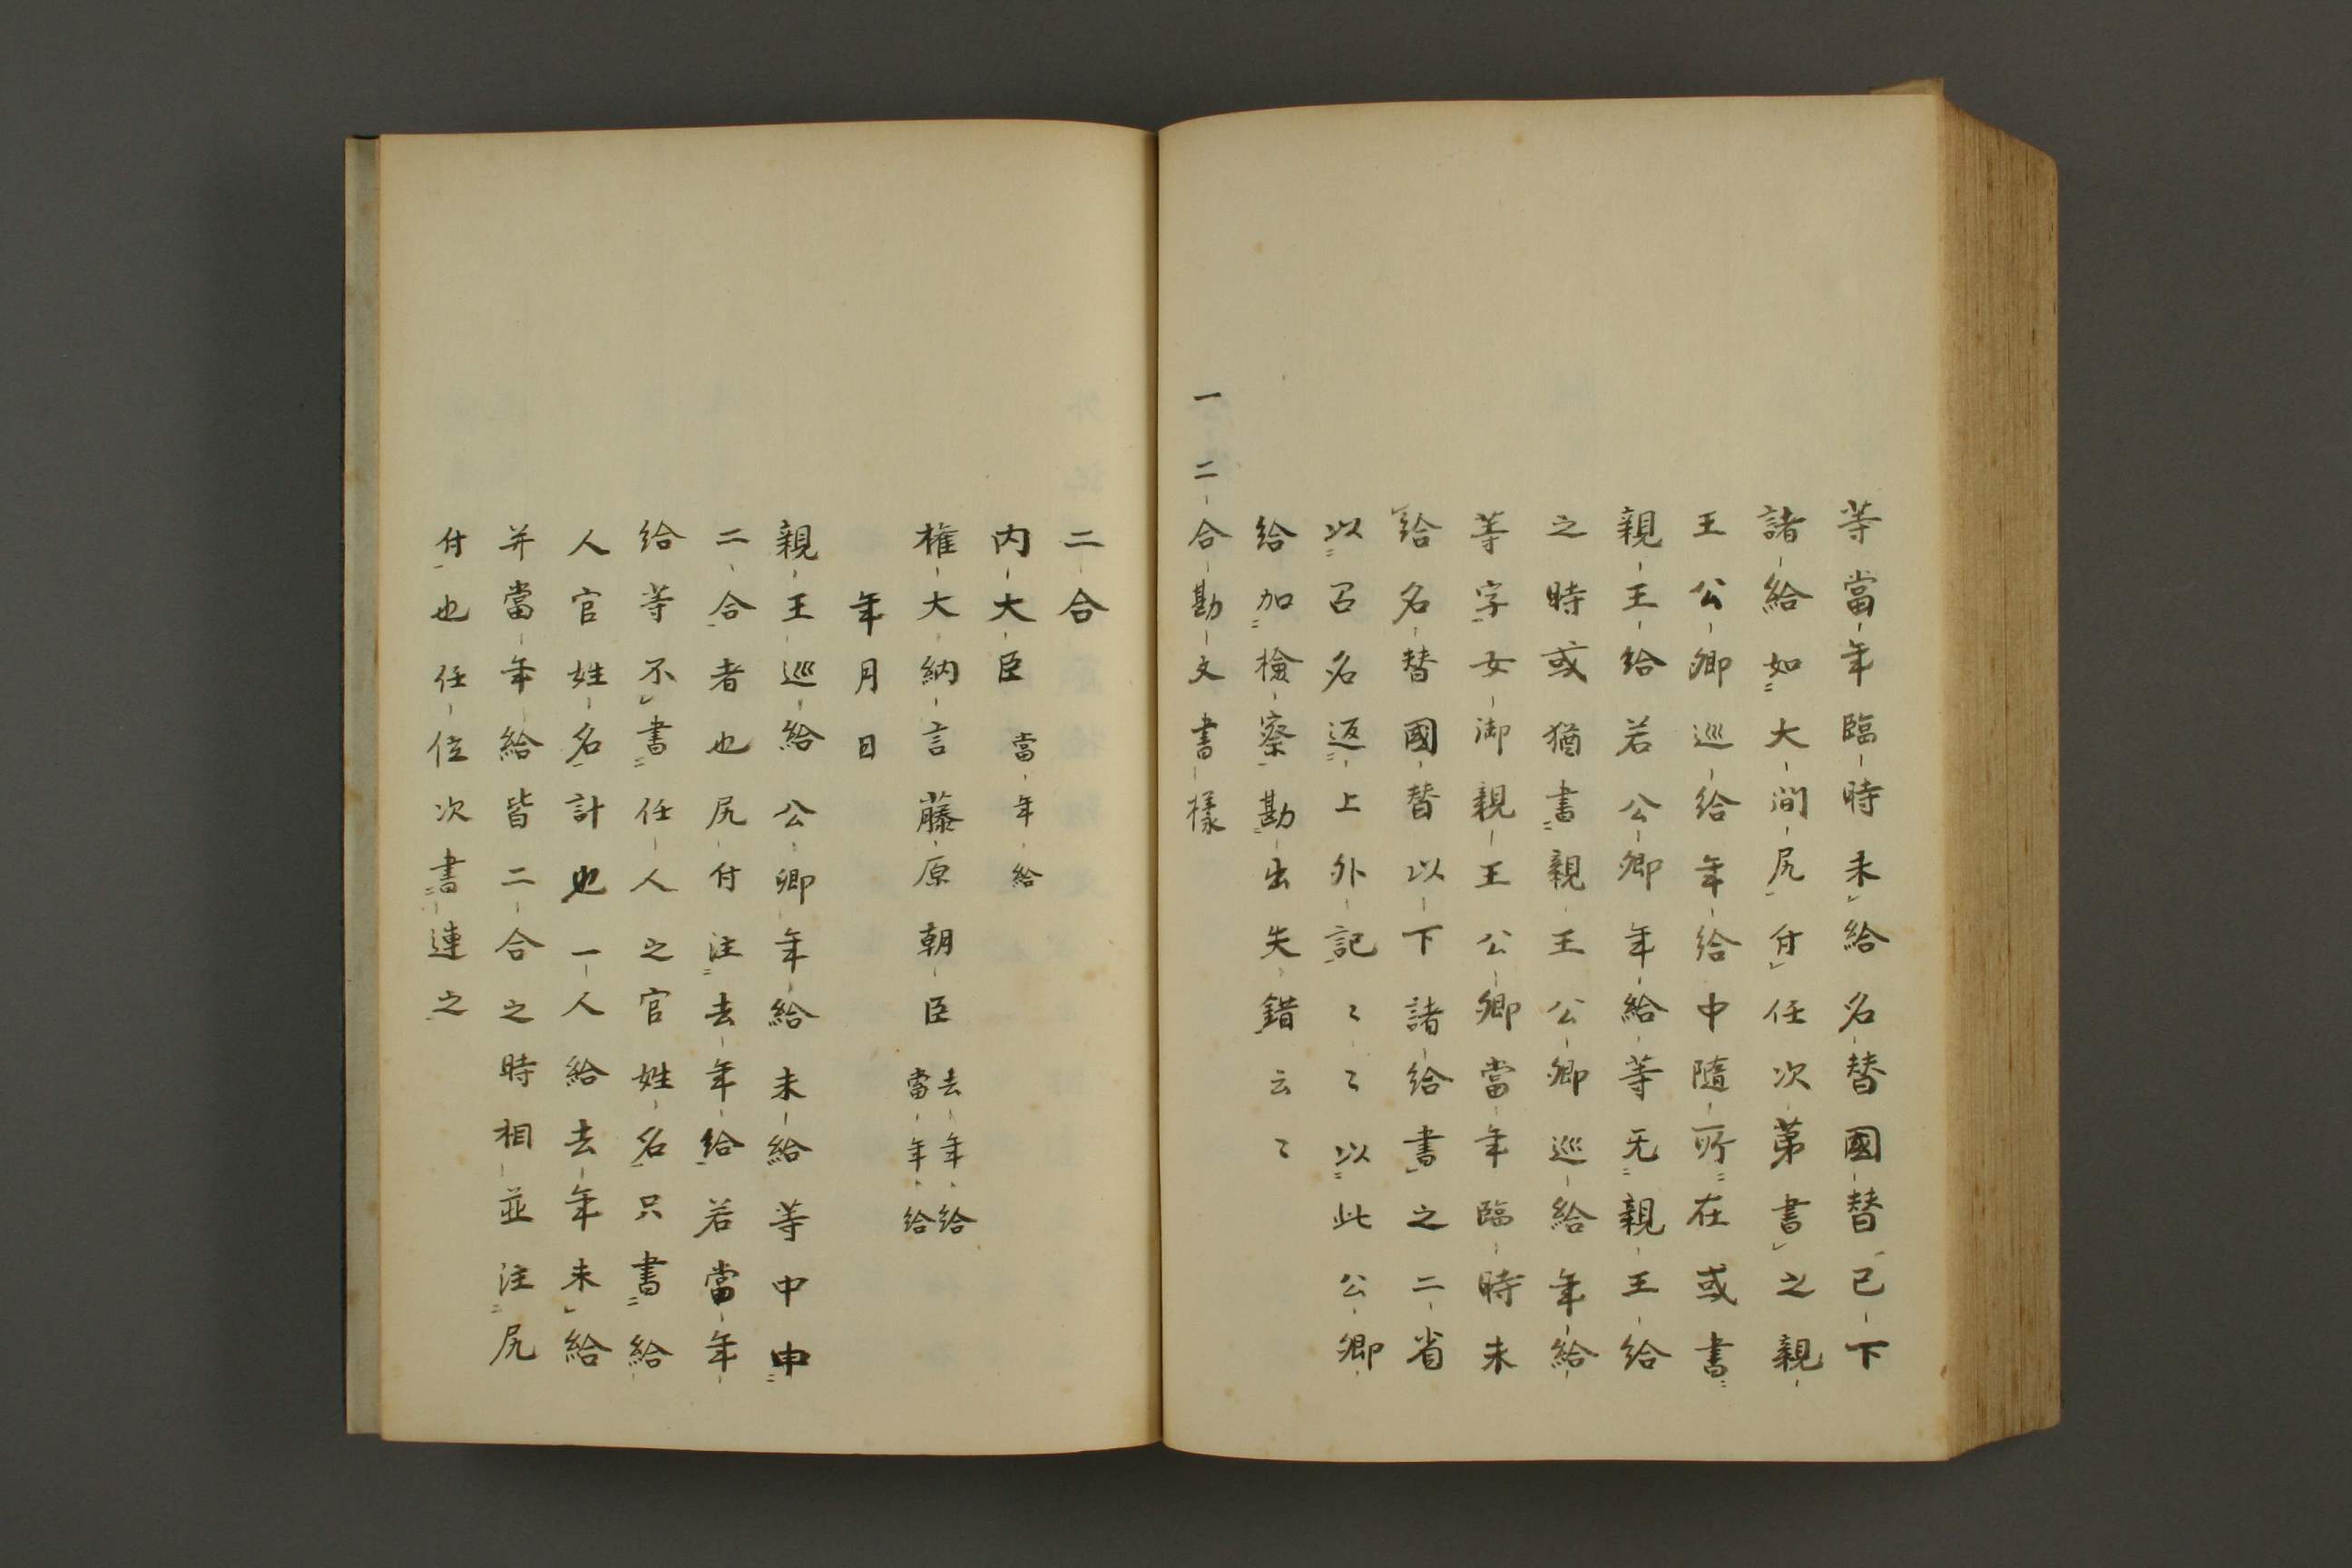 等當年臨時未給名替國替已下
諸給如大間尻付任次第書之親
王公卿巡給年給中隨所在或書
親王給若公卿年給等无親王給
之時或猶書親王公卿巡給年給
等字女御親王公卿當年臨時未
給名替國替以下諸給書之二省
以召名返上外記〻〻以此公卿
給加檢察勘出失錯云〻
一二合勘文書樣
二合
内大臣 當年給
權大納言藤原朝臣 去年給
當年給
年月日
親王巡給公卿年給未給等中申
二合者也尻付注去年給若當年
給等不書任人之官姓名只書給
人官姓名計也一人給去年未給
并當年給皆二合之時相並注尻
付也任位次書連之